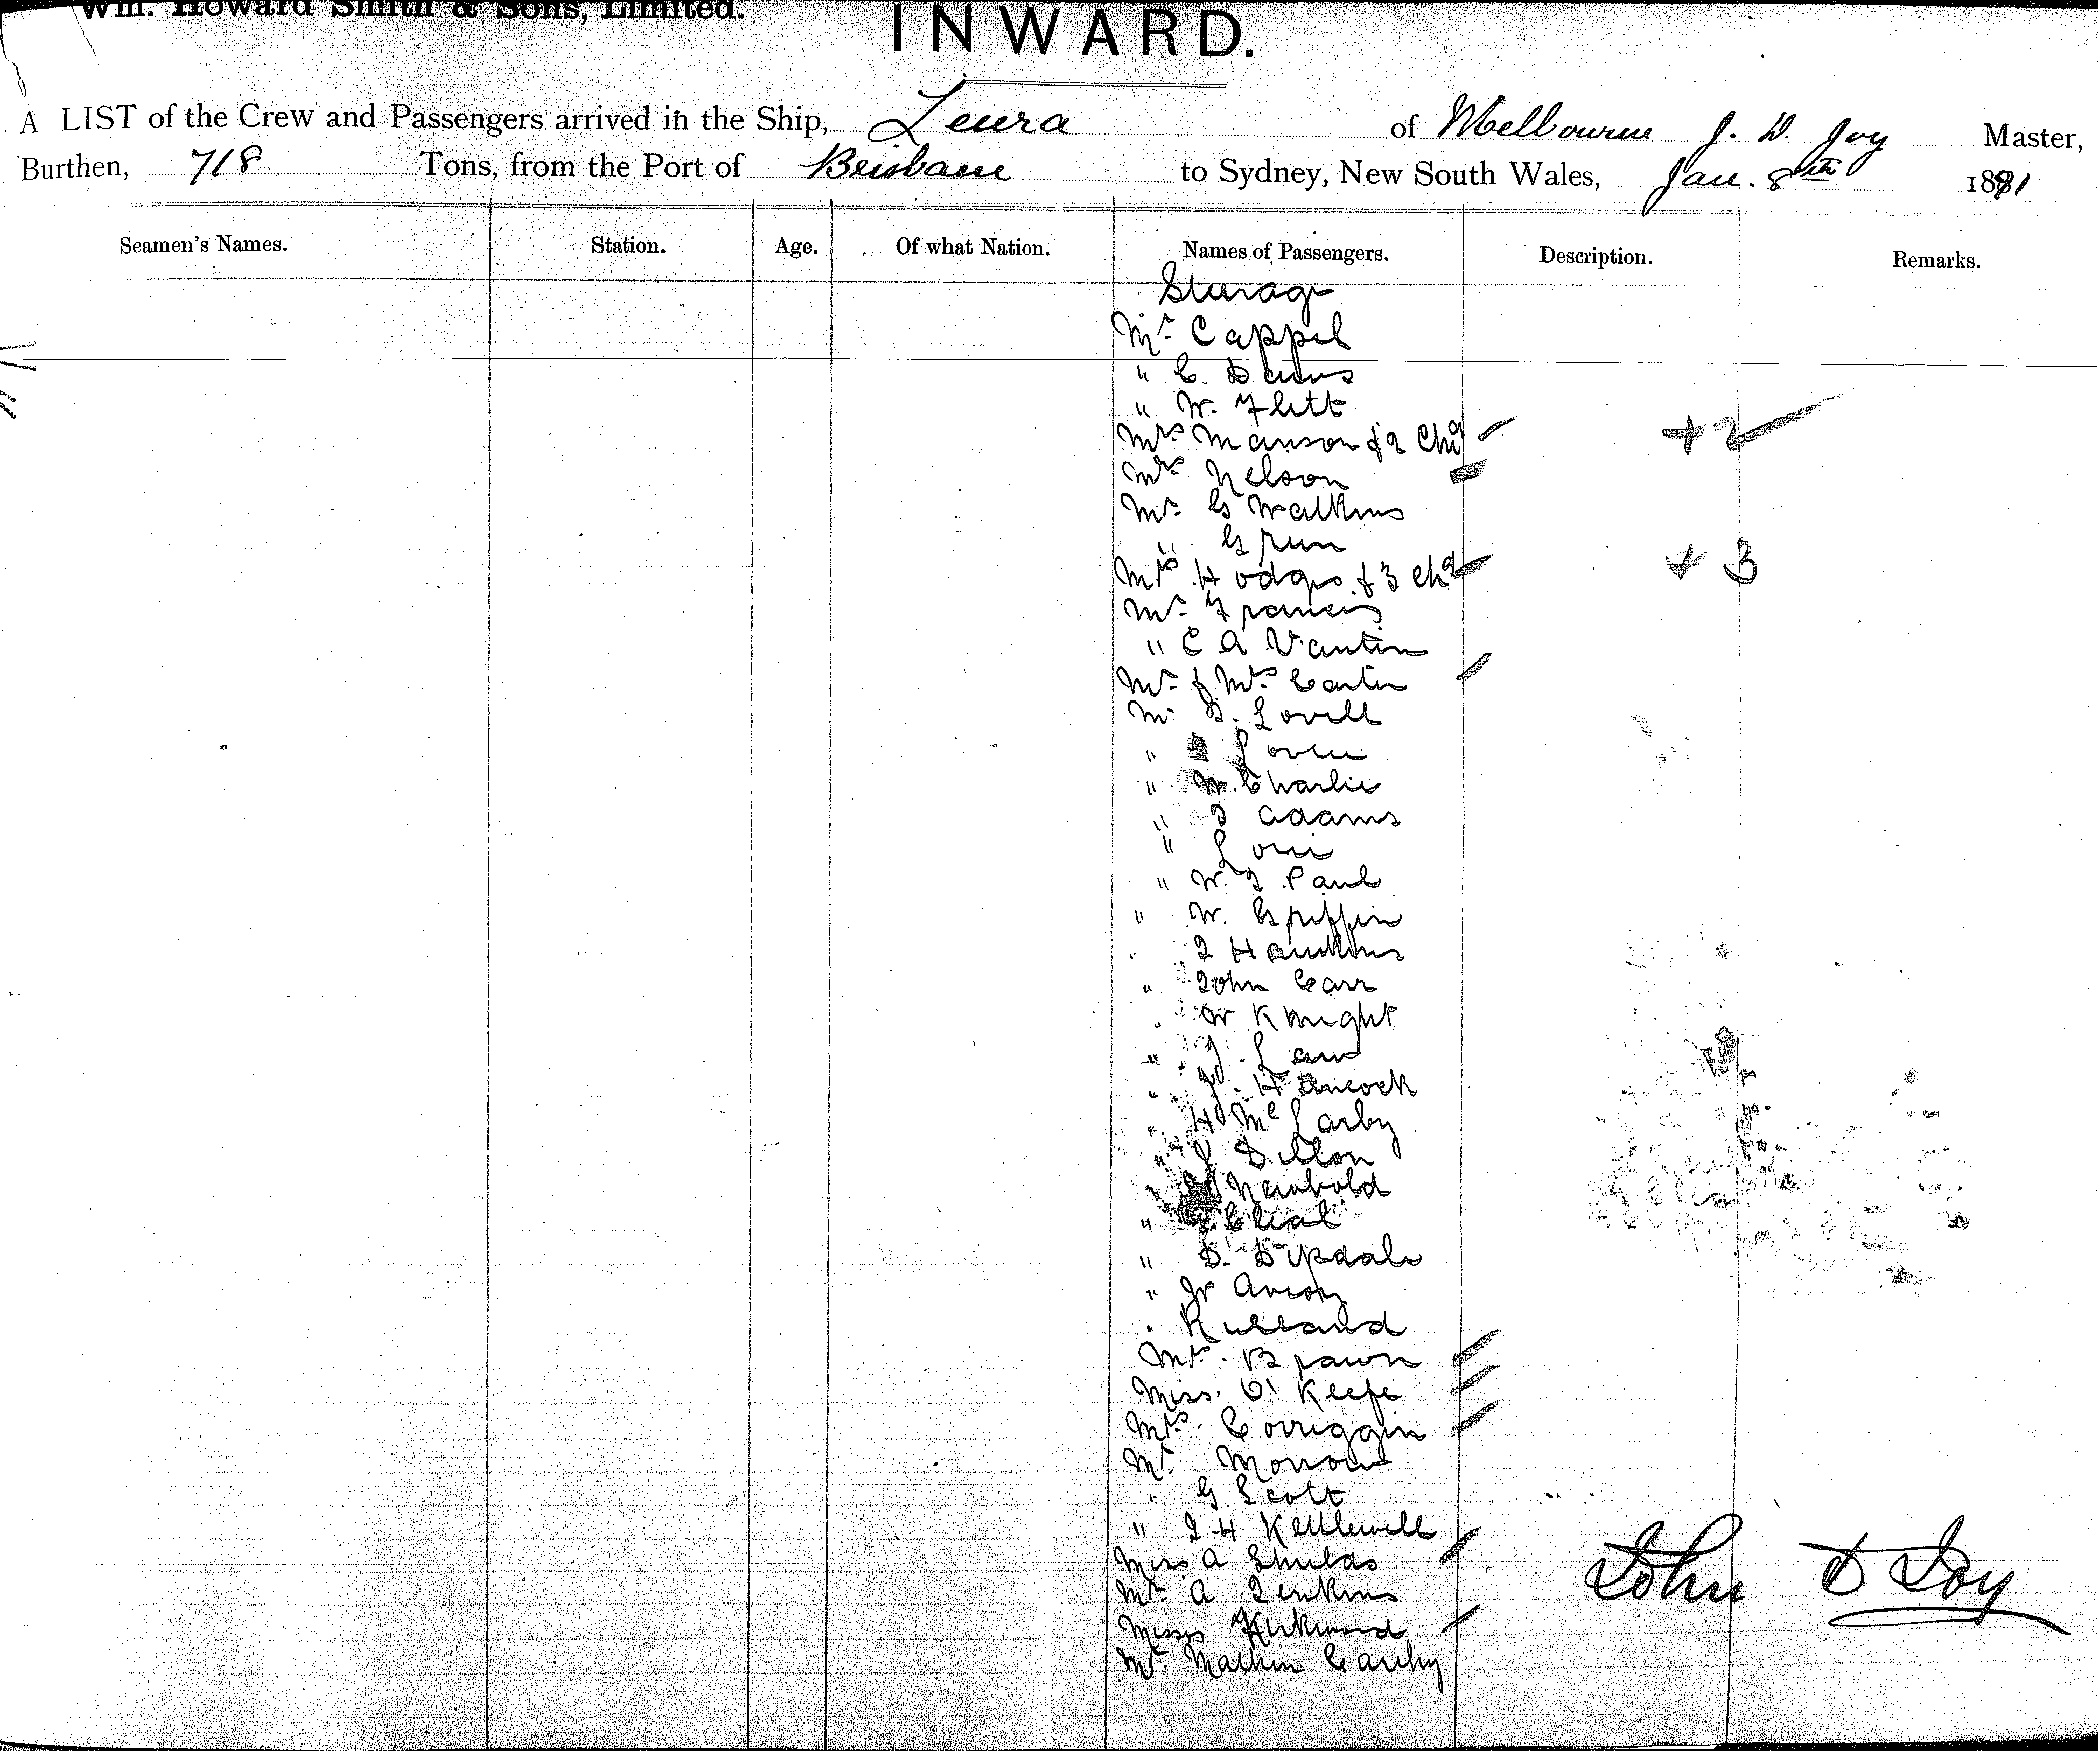 Wm. Howard Smith & Sons, Limited.
INWARD.
A LIST of the Crew and Passengers arrived in the Ship, Leura of Melbourne J. D. Joy Master,
Burthen, 718 Tons, from the Port of Brisbane to Sydney, New South Wales, Jan. 8th 1891
Seamen's Names. Station. Age. Of what Nation. Names of Passengers. Description. Remarks.
Steerage
Mr. Cappel
" C.
" W. Flett
Mrs Manson & 2 Chd + 2
Mrs Nelson
Mr. G Watkins
" Grun
Mrs Hodges & 3 Chd + 3
Mr. Francis
" C A Vantin
Mr. & Mrs Carter
Mr D. Lovell
"
" Charlie
" J Adams
"
" W. J Paul
" W. Griffin
" J Hawkins
" John Carr
" W Knight
" J. Law
" J. Hancock
" H McLarby
" J Dillon
" Newbold
"
" D.
" Jr
" Rulland
Mrs. Brawn
Miss. O'Keefe
Mrs. Corriggin
Mr. Morrow
" G Scott
" J H Kettlewell
Miss A Shields
Mr. A Jenkins
Misses Kirkwood
Mr. Carthy
John D Joy